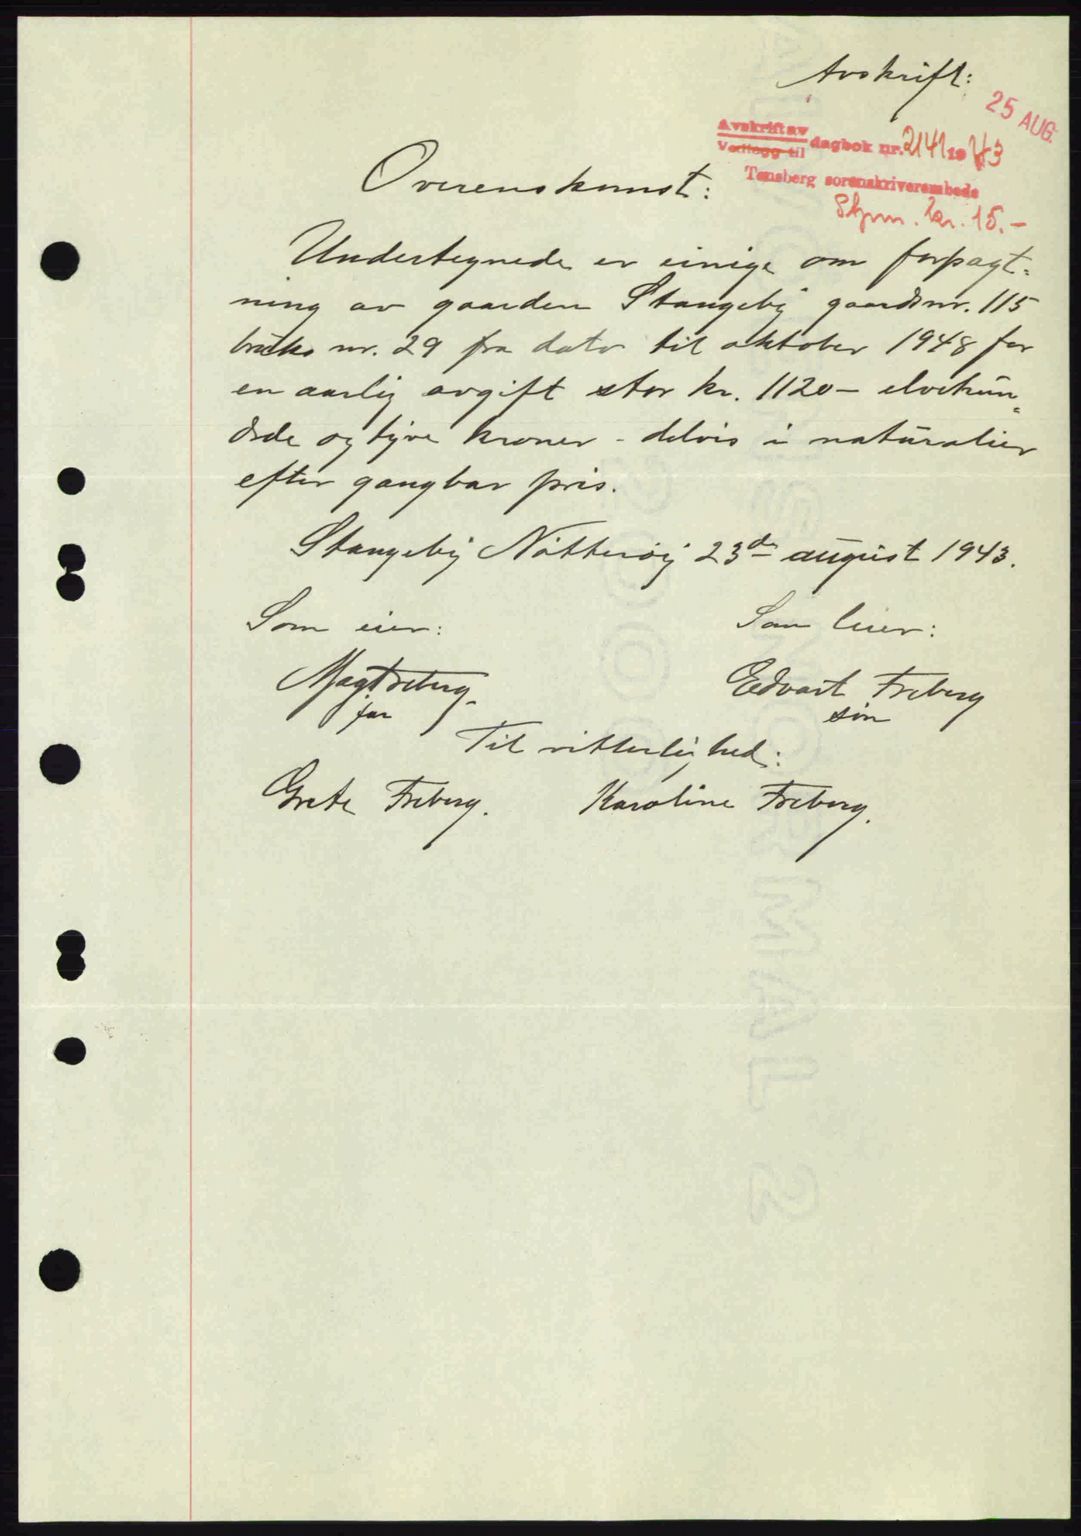 Avskrift:
25 AUG.
Avskrift av
Vedlegg til dagbok nr. 2141 1943
Tønsberg sorenskriverembede
Stpm. kr. 15.-
Overenskomst:
Undertegnede er einige om forpagt-
ning av gaarden Stangeby gaardsnr. 115
bruks nr. 29 fra dato til oktober 1948 for
en aarlig avgift stor kr. 1120- elvehun-
drde og tyve kroner - delvis i naturalier
efter gangbar pris.
Stangeby Nøtterøy 23de august 1943.
Som eier: Som leier:
Mag Freberg. Edvart Freberg
far søn
Til vitterlighed:
Grete Freberg. Karoline Freberg.
NORMAL 2